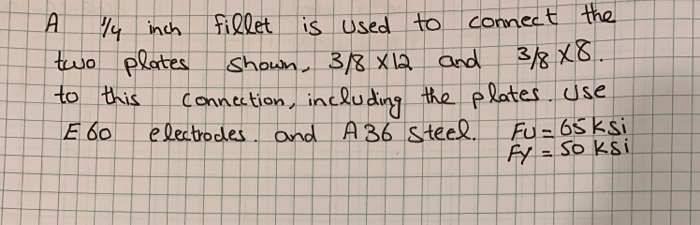 A 1/4 inch fillet is used to connect the
two plates shown, 3/8 X12 and 3/8 X8.
to this connection, including the plates. Use
E60 electrodes. and A36 steel. FU = 65 ksi
Fy = 50 ksi